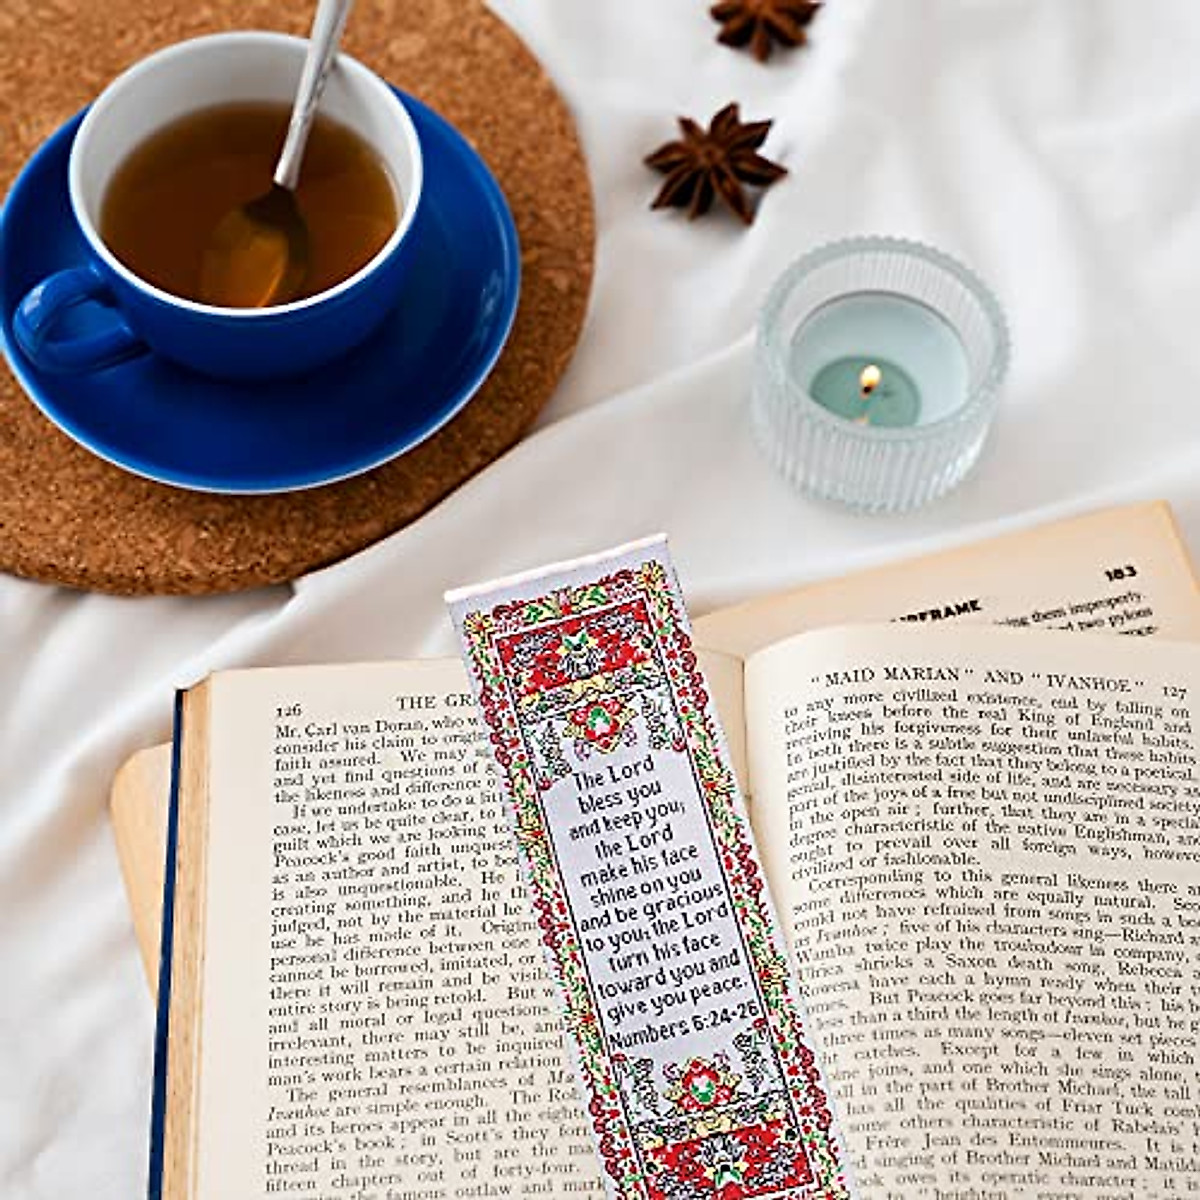 183
FRAME
ing them improperly.
two pylons
126
THE
Mr. Carl van Doran, who
consider his claim to
faith assured. We may
and yet find questions of
the likeness and difference
If we undertake to do a
case, let us be quite clear, to
guilt which we are looking
Peacock's good faith
as an author and artist, to
is also unquestionable. He
creating something, and he
judged, not by the material he
use he has made of it.
personal difference between one
cannot be borrowed, imitated, or
there it will remain and be
entire story is being retold. But
and all moral or legal questions
irrelevant, there may still be, and
interesting matters to be inquired
man's work bears a certain relation
The general resemblances of
Ivanhoe are simple enough. The
and its heroes appear in all the
Peacock's book; in Scott's they
thread in the story, but are the
fifteen chapters out of forty-four.
the famous outlaw and
The Lord
bless you
and keep you;
the Lord
make his face
shine on you
and be gracious
to you; the Lord
turn his face
toward you and
give you peace.
Numbers 6:24-26
"MAID MARIAN" AND "IVANHOE" 127
to any more civilized existence, end by falling on
their knees before the real King of England and
receiving his forgiveness for their unlawful habits.
In both there is a subtle suggestion that these habits
are justified by the fact that they belong to a poetical,
genial, disinterested side of life, and are necessary as
part of the joys of a free but not undisciplined society
in the open air; further, that they are in a special
degree characteristic of the native Englishman, and
ought to prevail over all foreign ways, however
civilized or fashionable.
Corresponding to this general likeness there are
some differences which are equally natural.
could not have refrained from songs in such a
as Ivanhoe; five of his characters sing—Richard
Wamba twice play the troubadour in company,
Ulrica shrieks a Saxon death song, Rebecca
Rowena have each a hymn ready when their
But Peacock goes far beyond this: his
less than a third the length of Ivanhoe, but he
three times as many songs—eleven set pieces
catches. Except for a few in which
joins, and one which she sings alone,
in the part of Brother Michael, the tall
has all the qualities of Friar Tuck
some others characteristic of Rabelais'
Frère Jean des Entommeures. It is
singing of Brother Michael and
owes its operatic character; it
to "heighten